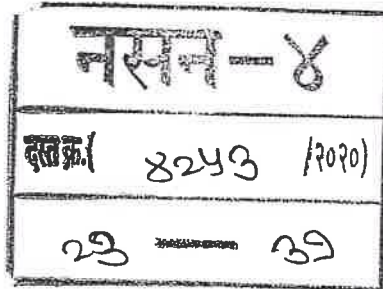 नसन-४
दस्त क्र.( ४२५३ /२०२०)
२३ — ३१